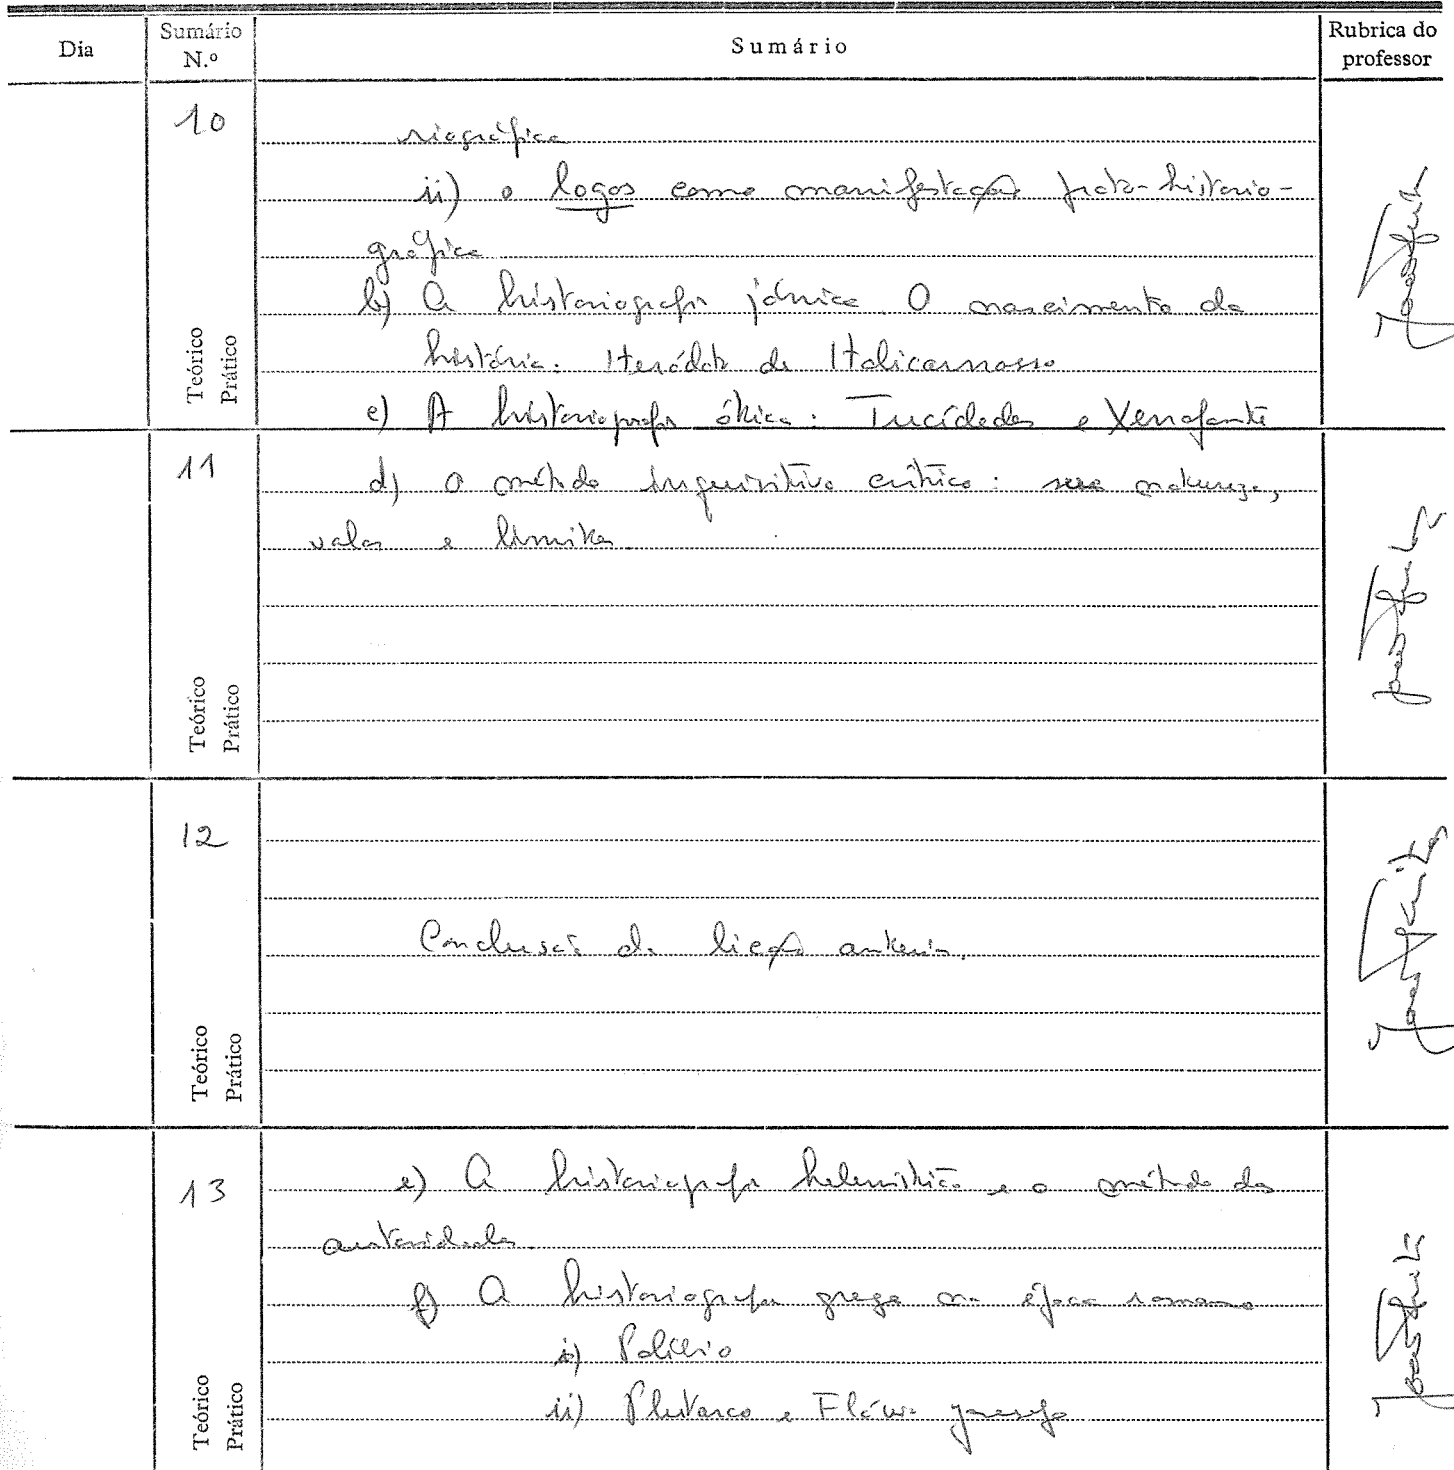 Dia
Sumário
N.º
Sumário
Rubrica do
professor
10
riográfica
ii) o logos como manifestação proto-historio-
gráfica
b) A historiografia jónica. O nascimento da
história: Heródoto de Halicarnasso
c) A historiografia ática: Tucídides e Xenofonte
Teórico
Prático
11
d) O método inquisitivo crítico: sua natureza,
valor e limites.
Teórico
Prático
12
Conclusão da lição anterior.
Teórico
Prático
13
e) A historiografia helenística e o método da
autoridade.
f) A historiografia grega na época romana
i) Políbio
ii) Plutarco e Flávio Josefo
Teórico
Prático